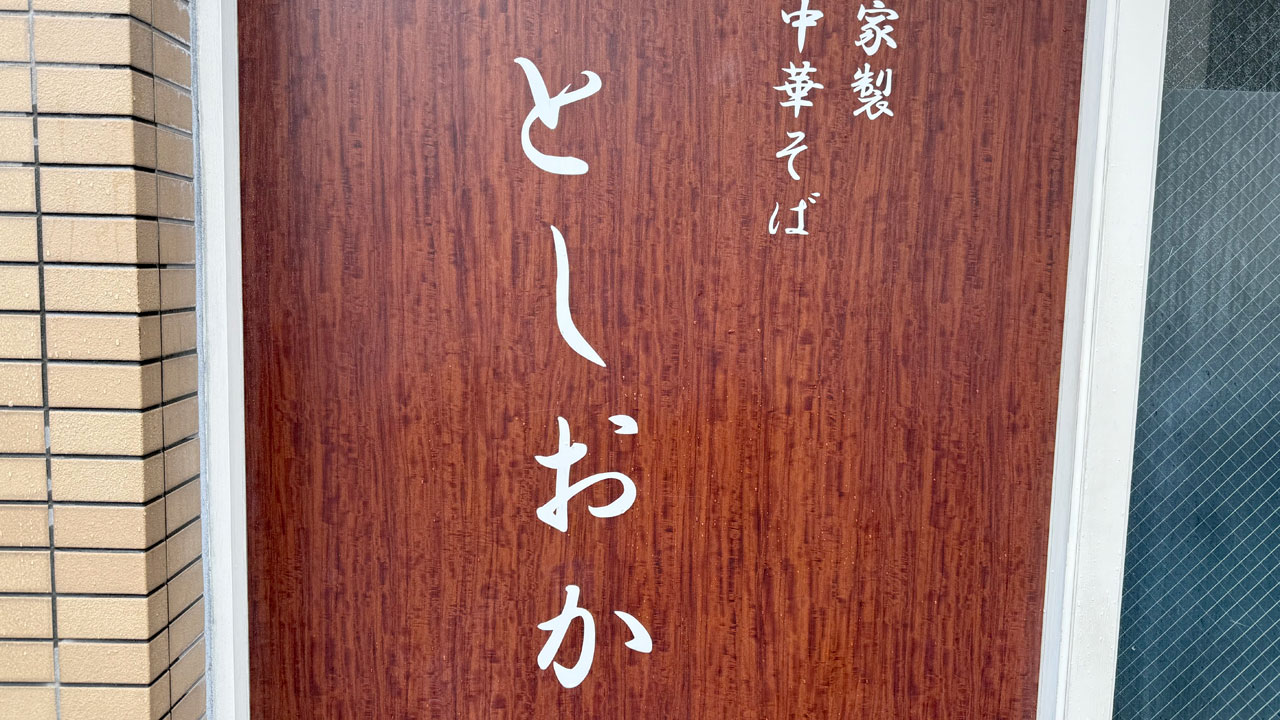 家製
中華そば
としおか